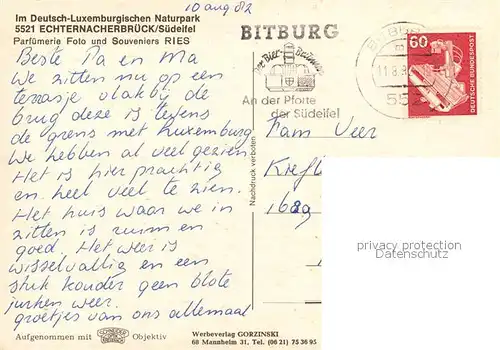 10 aug 82
Im Deutsch-Luxemburgischen Naturpark
5521 ECHTERNACHERBRÜCK/Südeifel
Parfümerie Foto und Souveniers RIES
Beste Pa en Ma
We zitten nu op een
terrasje vlakbij de
brug deze is tevens
de grens met Luxemburg
We hebben al veel gezien.
Het is hier prachtig
en heel veel te zien.
Het huis waar we in
zitten is ruim en
goed. Het weer is
wisselvallig en een
stuk kouder geen blote
jurken weer.
groetjes van ons allemaal
Aufgenommen mit Objektiv
BITBURG
An der Pforte
der Südeifel
60
DEUTSCHE BUNDESPOST
Fam Veer
1689
Nachdruck verboten
privacy protection
datenschutz
Werbeverlag GORZINSKI
68 Mannheim 31, Tel. (06 21) 75 36 95